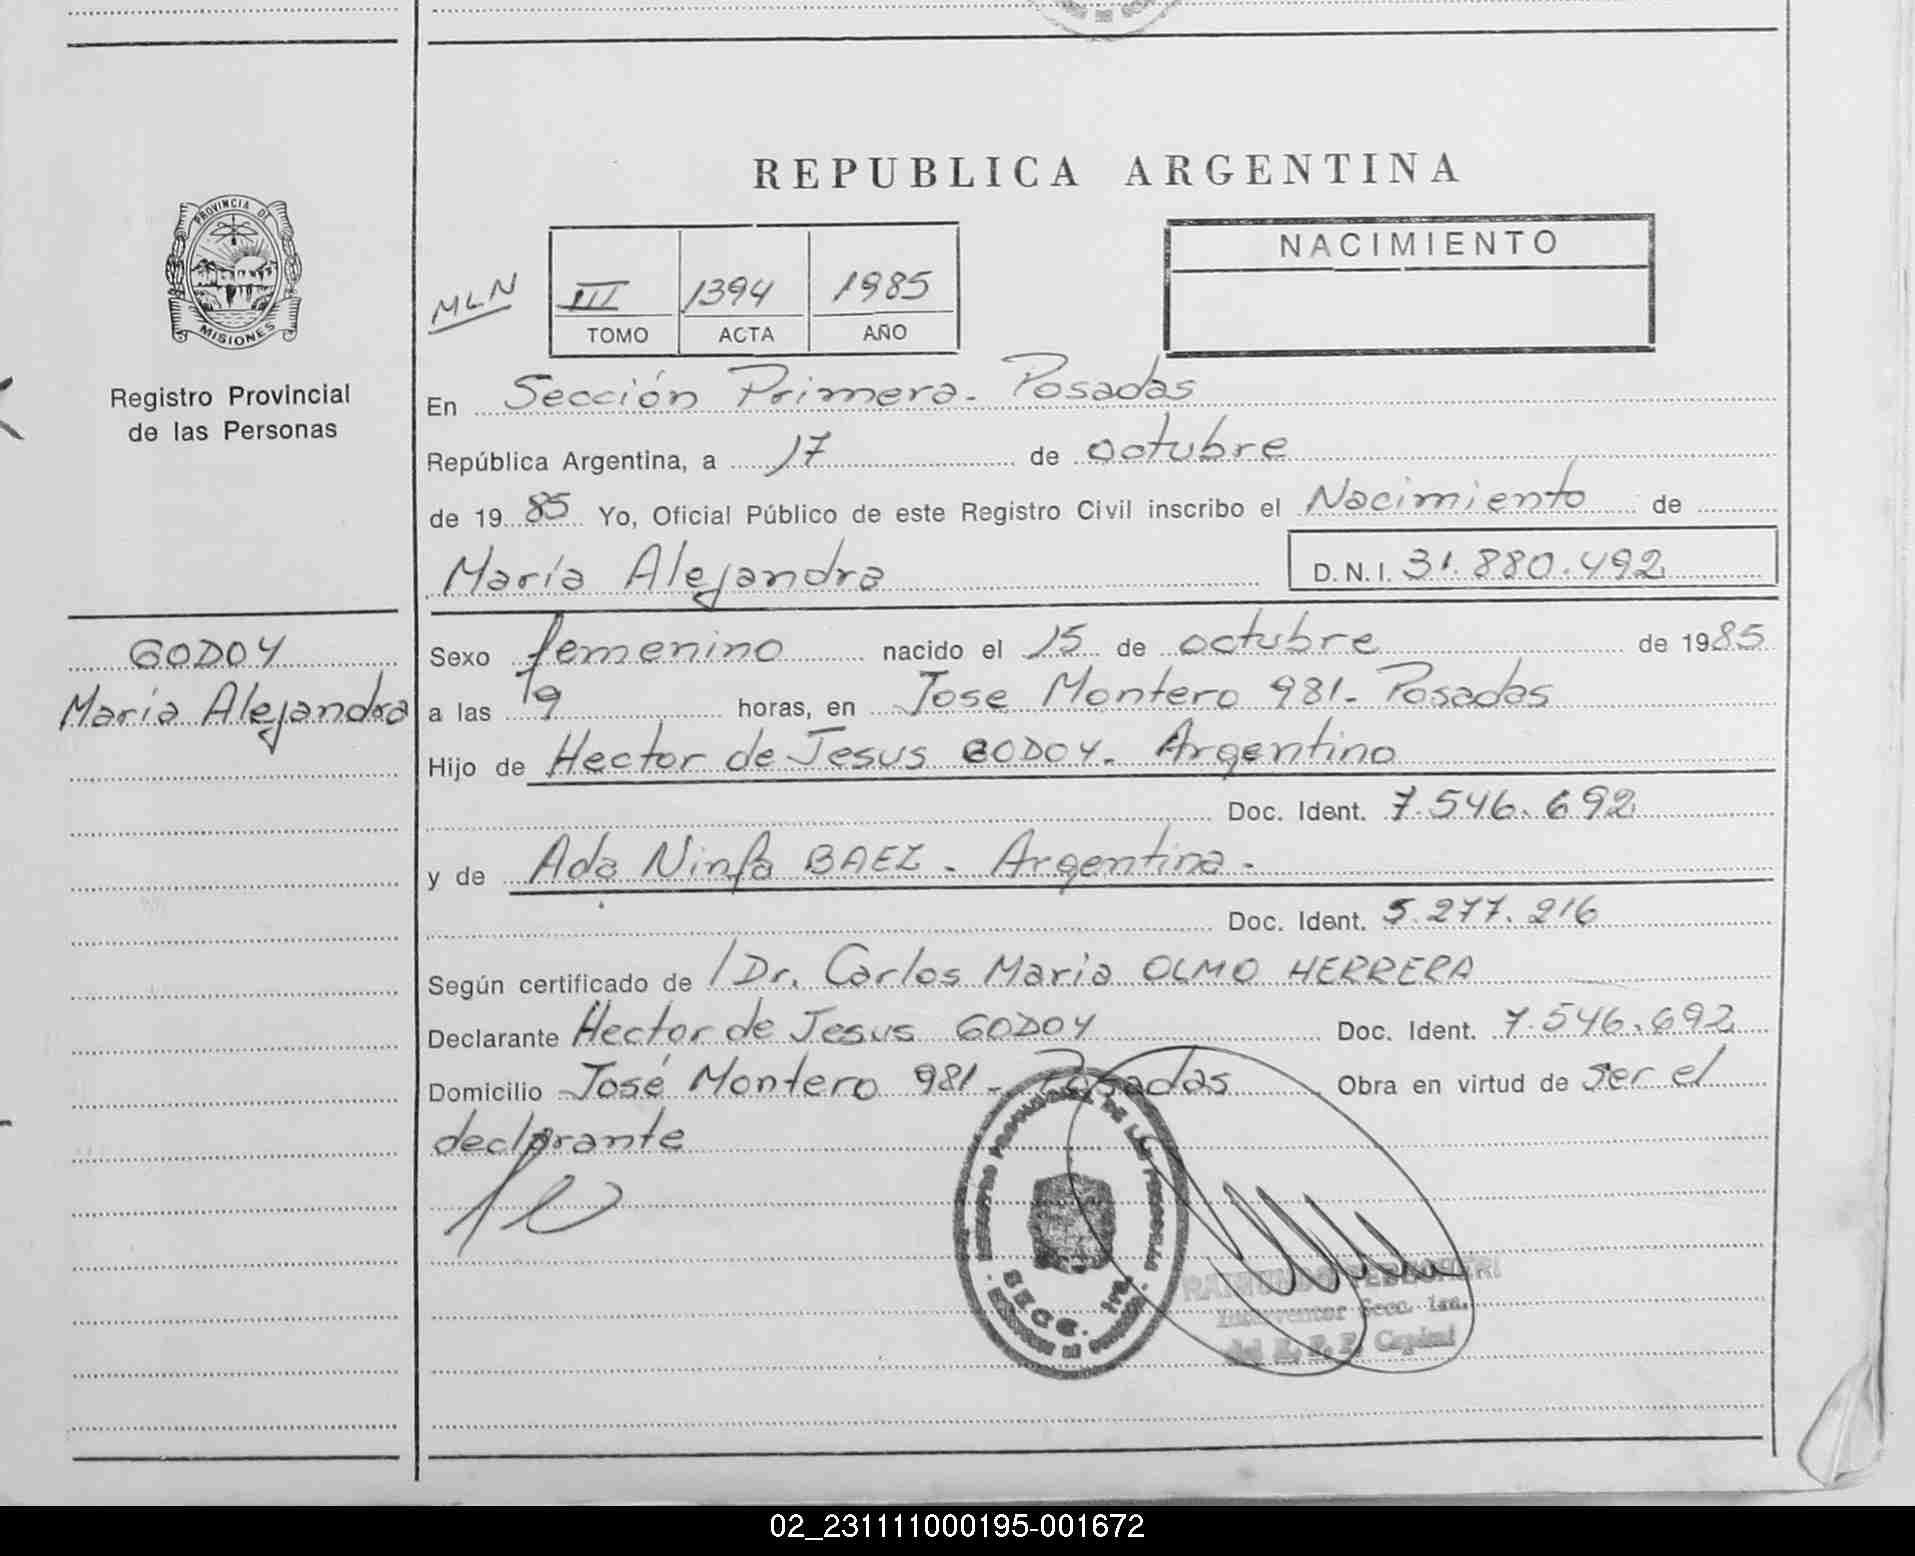 PROVINCIA DE
MISIONES
Registro Provincial
de las Personas
GODOY
María Alejandra
REPUBLICA ARGENTINA
MLN
III 1394 1985
TOMO ACTA AÑO
NACIMIENTO
En Sección Primera. Posadas
República Argentina, a 17 de octubre
de 1985 Yo, Oficial Público de este Registro Civil inscribo el Nacimiento de
María Alejandra D.N.I. 31.880.492
Sexo femenino nacido el 15 de octubre de 1985
a las 19 horas, en Jose Montero 981- Posadas
Hijo de Hector de Jesus GODOY. Argentino
Doc. Ident. 7.546.692
y de Ada Ninfa BAEZ - Argentina.
Doc. Ident. 5.277.216
Según certificado de /Dr. Carlos Maria OLMO HERRERA
Declarante Hector de Jesus GODOY Doc. Ident. 7.546.692
Domicilio José Montero 981- Posadas Obra en virtud de ser el
declarante
SECC. 1ra.
Secc. 1ra.
02_231111000195-001672